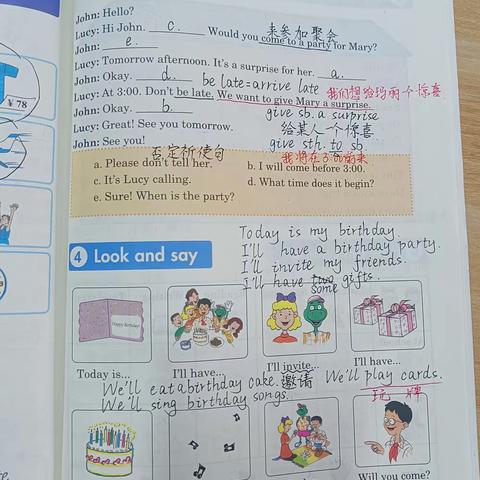 John: Hello?
Lucy: Hi John. c. Would you come to a party for Mary?
来参加聚会
John: e.
Lucy: Tomorrow afternoon. It's a surprise for her. a.
John: Okay. d. be late=arrive late
Lucy: At 3:00. Don't be late. We want to give Mary a surprise.
我们想给玛丽一个惊喜
John: Okay. b. give sb. a surprise
Lucy: Great! See you tomorrow. 给某人一个惊喜
John: See you! give sth. to sb.
否定祈使句
我将在3:00前来
a. Please don't tell her. b. I will come before 3:00.
c. It's Lucy calling. d. What time does it begin?
e. Sure! When is the party?
¥78
Today is my birthday.
I'll have a birthday party.
4 Look and say
I'll invite my friends.
I'll have two gifts.
some
Happy Birthday!
Today is... I'll have... I'll invite... I'll have...
邀请
We'll eat a birthday cake. We'll play cards.
We'll sing birthday songs. 玩 牌
Will you come?